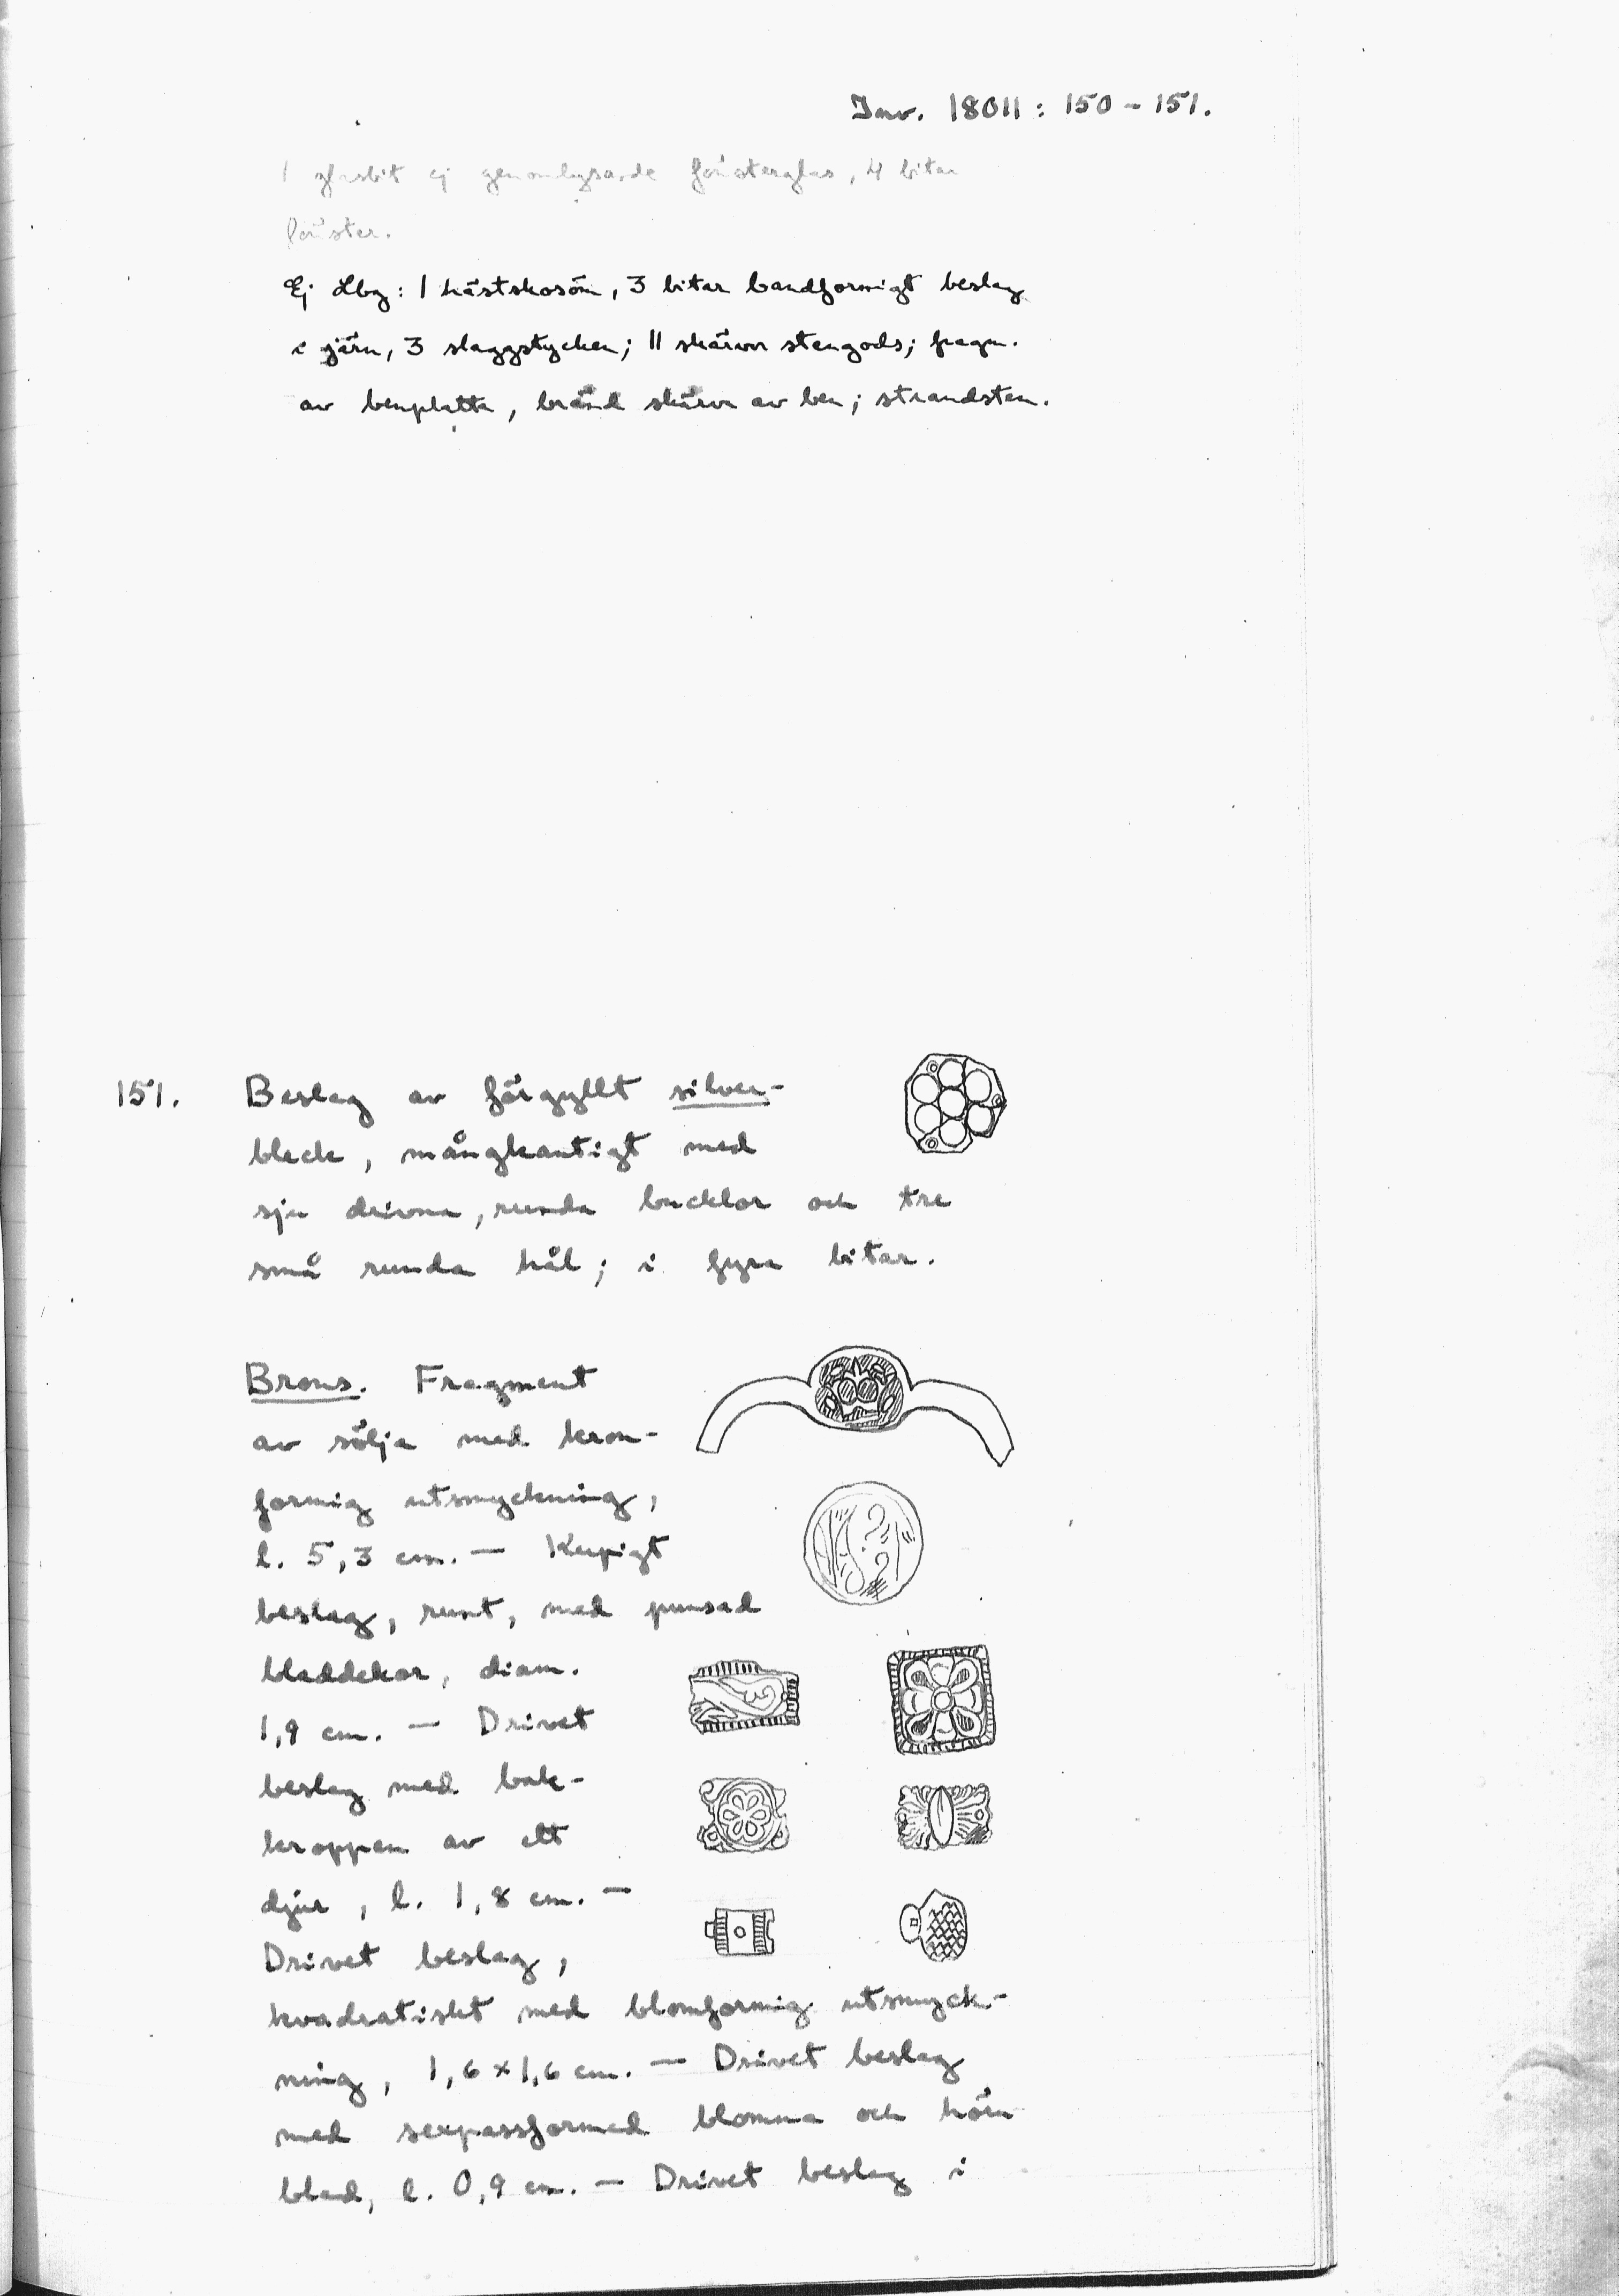 Inv. 18011 : 150 - 151.
1 glasbit ej genomlysande fönsterglas, 4 bitar
fönster.
Ej Lbg: 1 hästskosöm, 3 bitar bandformigt beslag
i järn, 3 slaggstycken; 11 skärvor stengods; fragm.
av benplatta, bränd skärva av ben; strandsten.
151. Beslag av förgyllt silver-
bleck, mångkantigt med
sju drivna, runda bucklor och tre
små runda hål; i fyra bitar.
Brons. Fragment
av sölja med kron-
formig utsmyckning,
l. 5,3 cm. — Kupigt
beslag, runt, med punsad
bladdekor, diam.
1,9 cm. — Drivet
beslag med bak-
kroppen av ett
djur, l. 1,8 cm. —
Drivet beslag,
kvadratiskt med blomformig utsmyck-
ning, 1,6 × 1,6 cm. — Drivet beslag
med sexpassformad blomma och hörn
blad, l. 0,9 cm. — Drivet beslag i